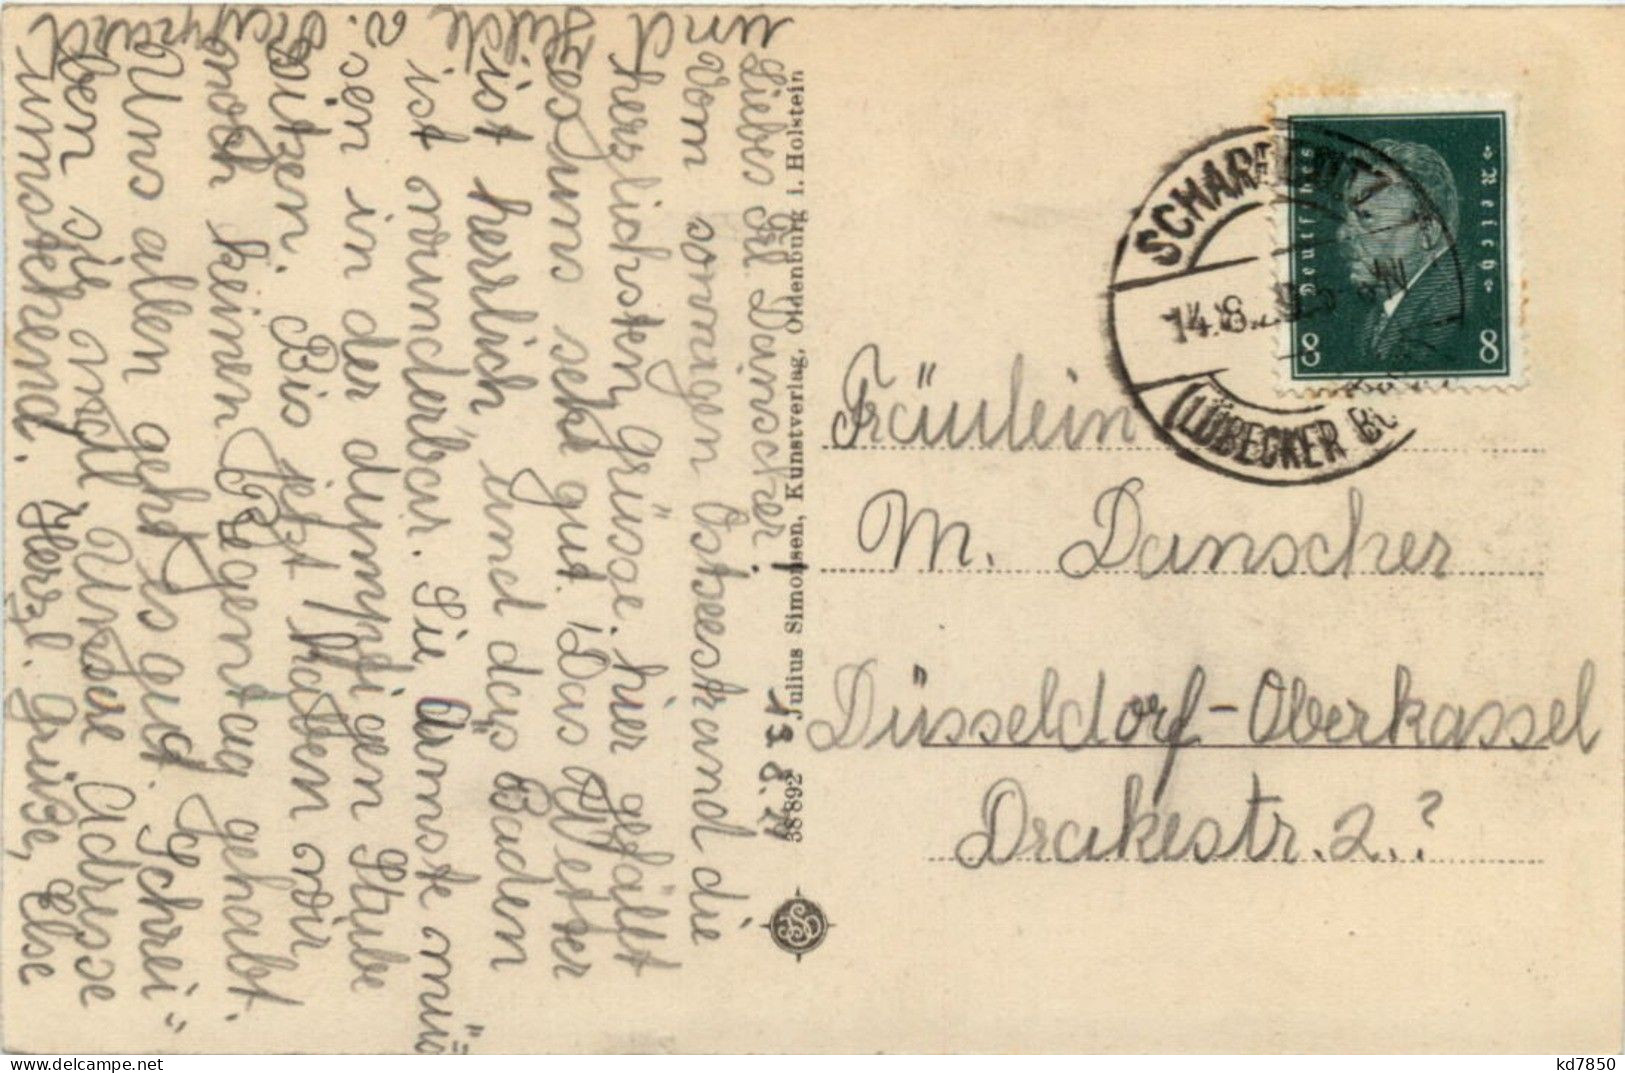 13.8.29
Liebes Frl. Danscher!
Vom sonnigen Ostseestrand die
herzlichsten Grüsse. hier gefällt
es uns sehr gut. Das Wetter
ist herrlich, und das Baden
ist wunderbar. Sie, Ärmste müs-
sen in der dumpfigen Stube
sitzen. Bis jetzt haben wir
noch keinen Regentag gehabt.
Uns allen geht es gut. Schrei-
ben Sie wohl. Unsere Adresse
umstehend. Herzl. Grüße, Else
und Hilde
38892 Julius Simonsen, Kunstverlag, Oldenburg i. Holstein
Deutsches Reich
8 8
SCHARBEUTZ
14.8.29
(LÜBECKER BU
Fräulein
M. Danscher
Düsseldorf-Oberkassel
Drakestr. 2.?
kd7850